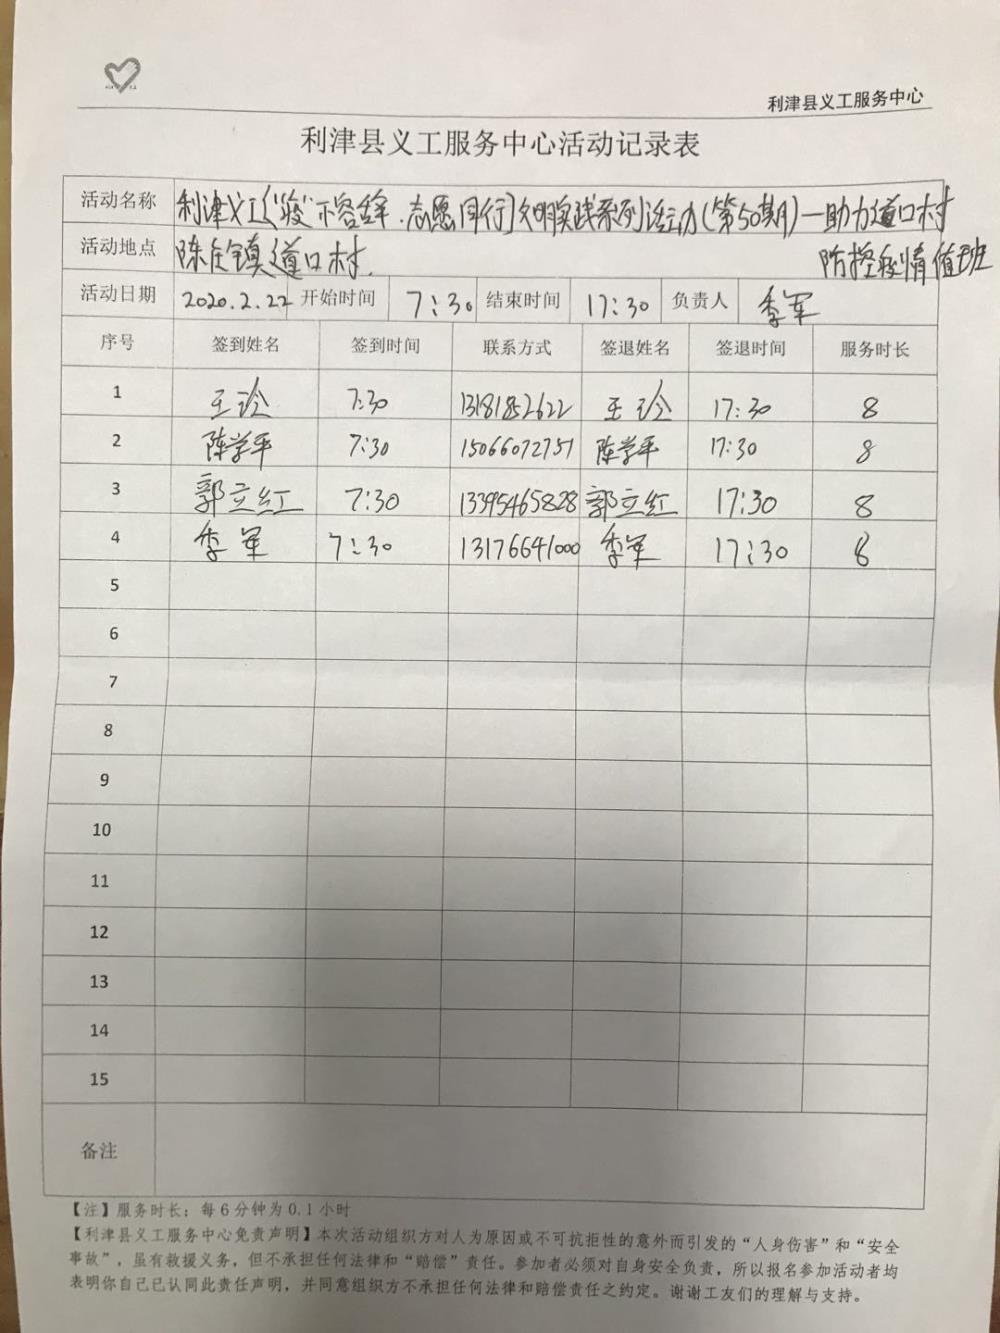 利津县义工服务中心
利津县义工服务中心活动记录表
活动名称 利津义工〔“疫”不容辞·志愿同行〕文明实践系列活动(第50期)—助力道口村
防控疫情值班
活动地点 陈庄镇道口村
活动日期 2020.2.22 开始时间 7:30 结束时间 17:30 负责人 季军
序号 签到姓名 签到时间 联系方式 签退姓名 签退时间 服务时长
1 王玲 7:30 13181852622 王玲 17:30 8
2 陈学平 7:30 15066072751 陈学平 17:30 8
3 郭立红 7:30 13395465828 郭立红 17:30 8
4 季军 7:30 13176641000 季军 17:30 8
5
6
7
8
9
10
11
12
13
14
15
备注
【注】服务时长：每6分钟为0.1小时
【利津县义工服务中心免责声明】本次活动组织方对人为原因或不可抗拒性的意外而引发的“人身伤害”和“安全
事故”，虽有救援义务，但不承担任何法律和“赔偿”责任。参加者必须对自身安全负责，所以报名参加活动者均
表明你自己已认同此责任声明，并同意组织方不承担任何法律和赔偿责任之约定。谢谢工友们的理解与支持。